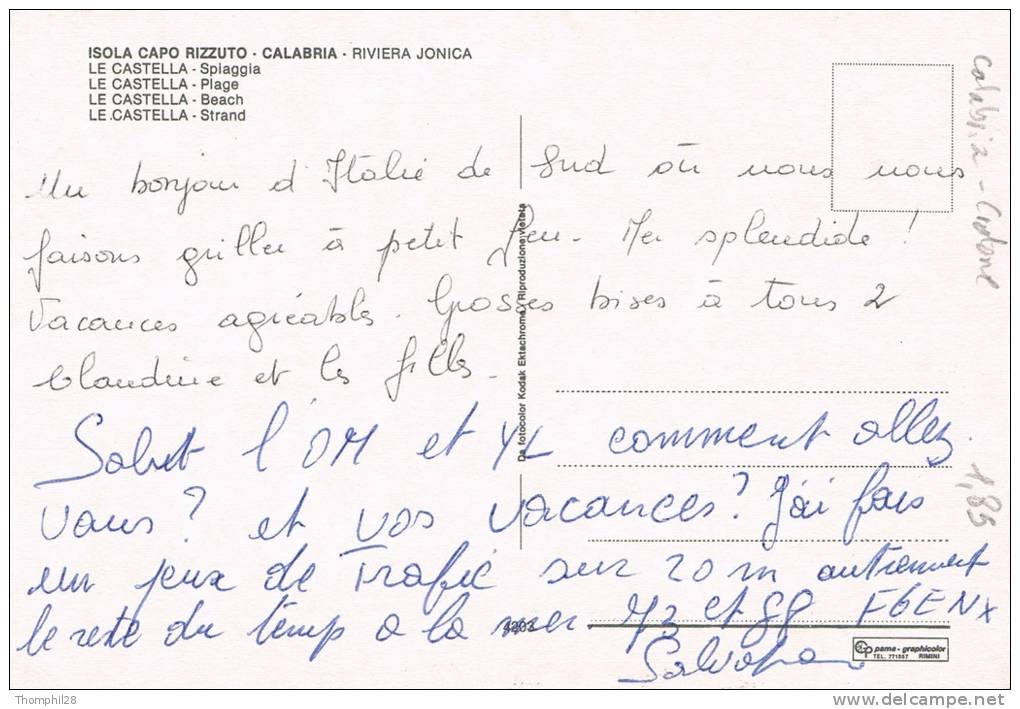 ISOLA CAPO RIZZUTO - CALABRIA - RIVIERA JONICA
LE CASTELLA - Spiaggia
LE CASTELLA - Plage
LE CASTELLA - Beach
LE CASTELLA - Strand
Un bonjour d'Italie de Sud où nous nous
faisons griller à petit feu. Mer splendide !
Vacances agréables. Grosses bises à tous 2
Claudine et les filles.
Salut l'OM et YL comment allez
vous? et vos vacances? J'ai fais
un jeux de Trafic sur 20 m autrement
le reste du temps a la mer 73 et 88 F6ENX
Da fotocolor Kodak Ektachrome / Riproduzione vietata
4203
pama - graphicolor
TEL. 771557 RIMINI
Calabria - Crotone
1,85
Thomphil28
www.delcampe.net